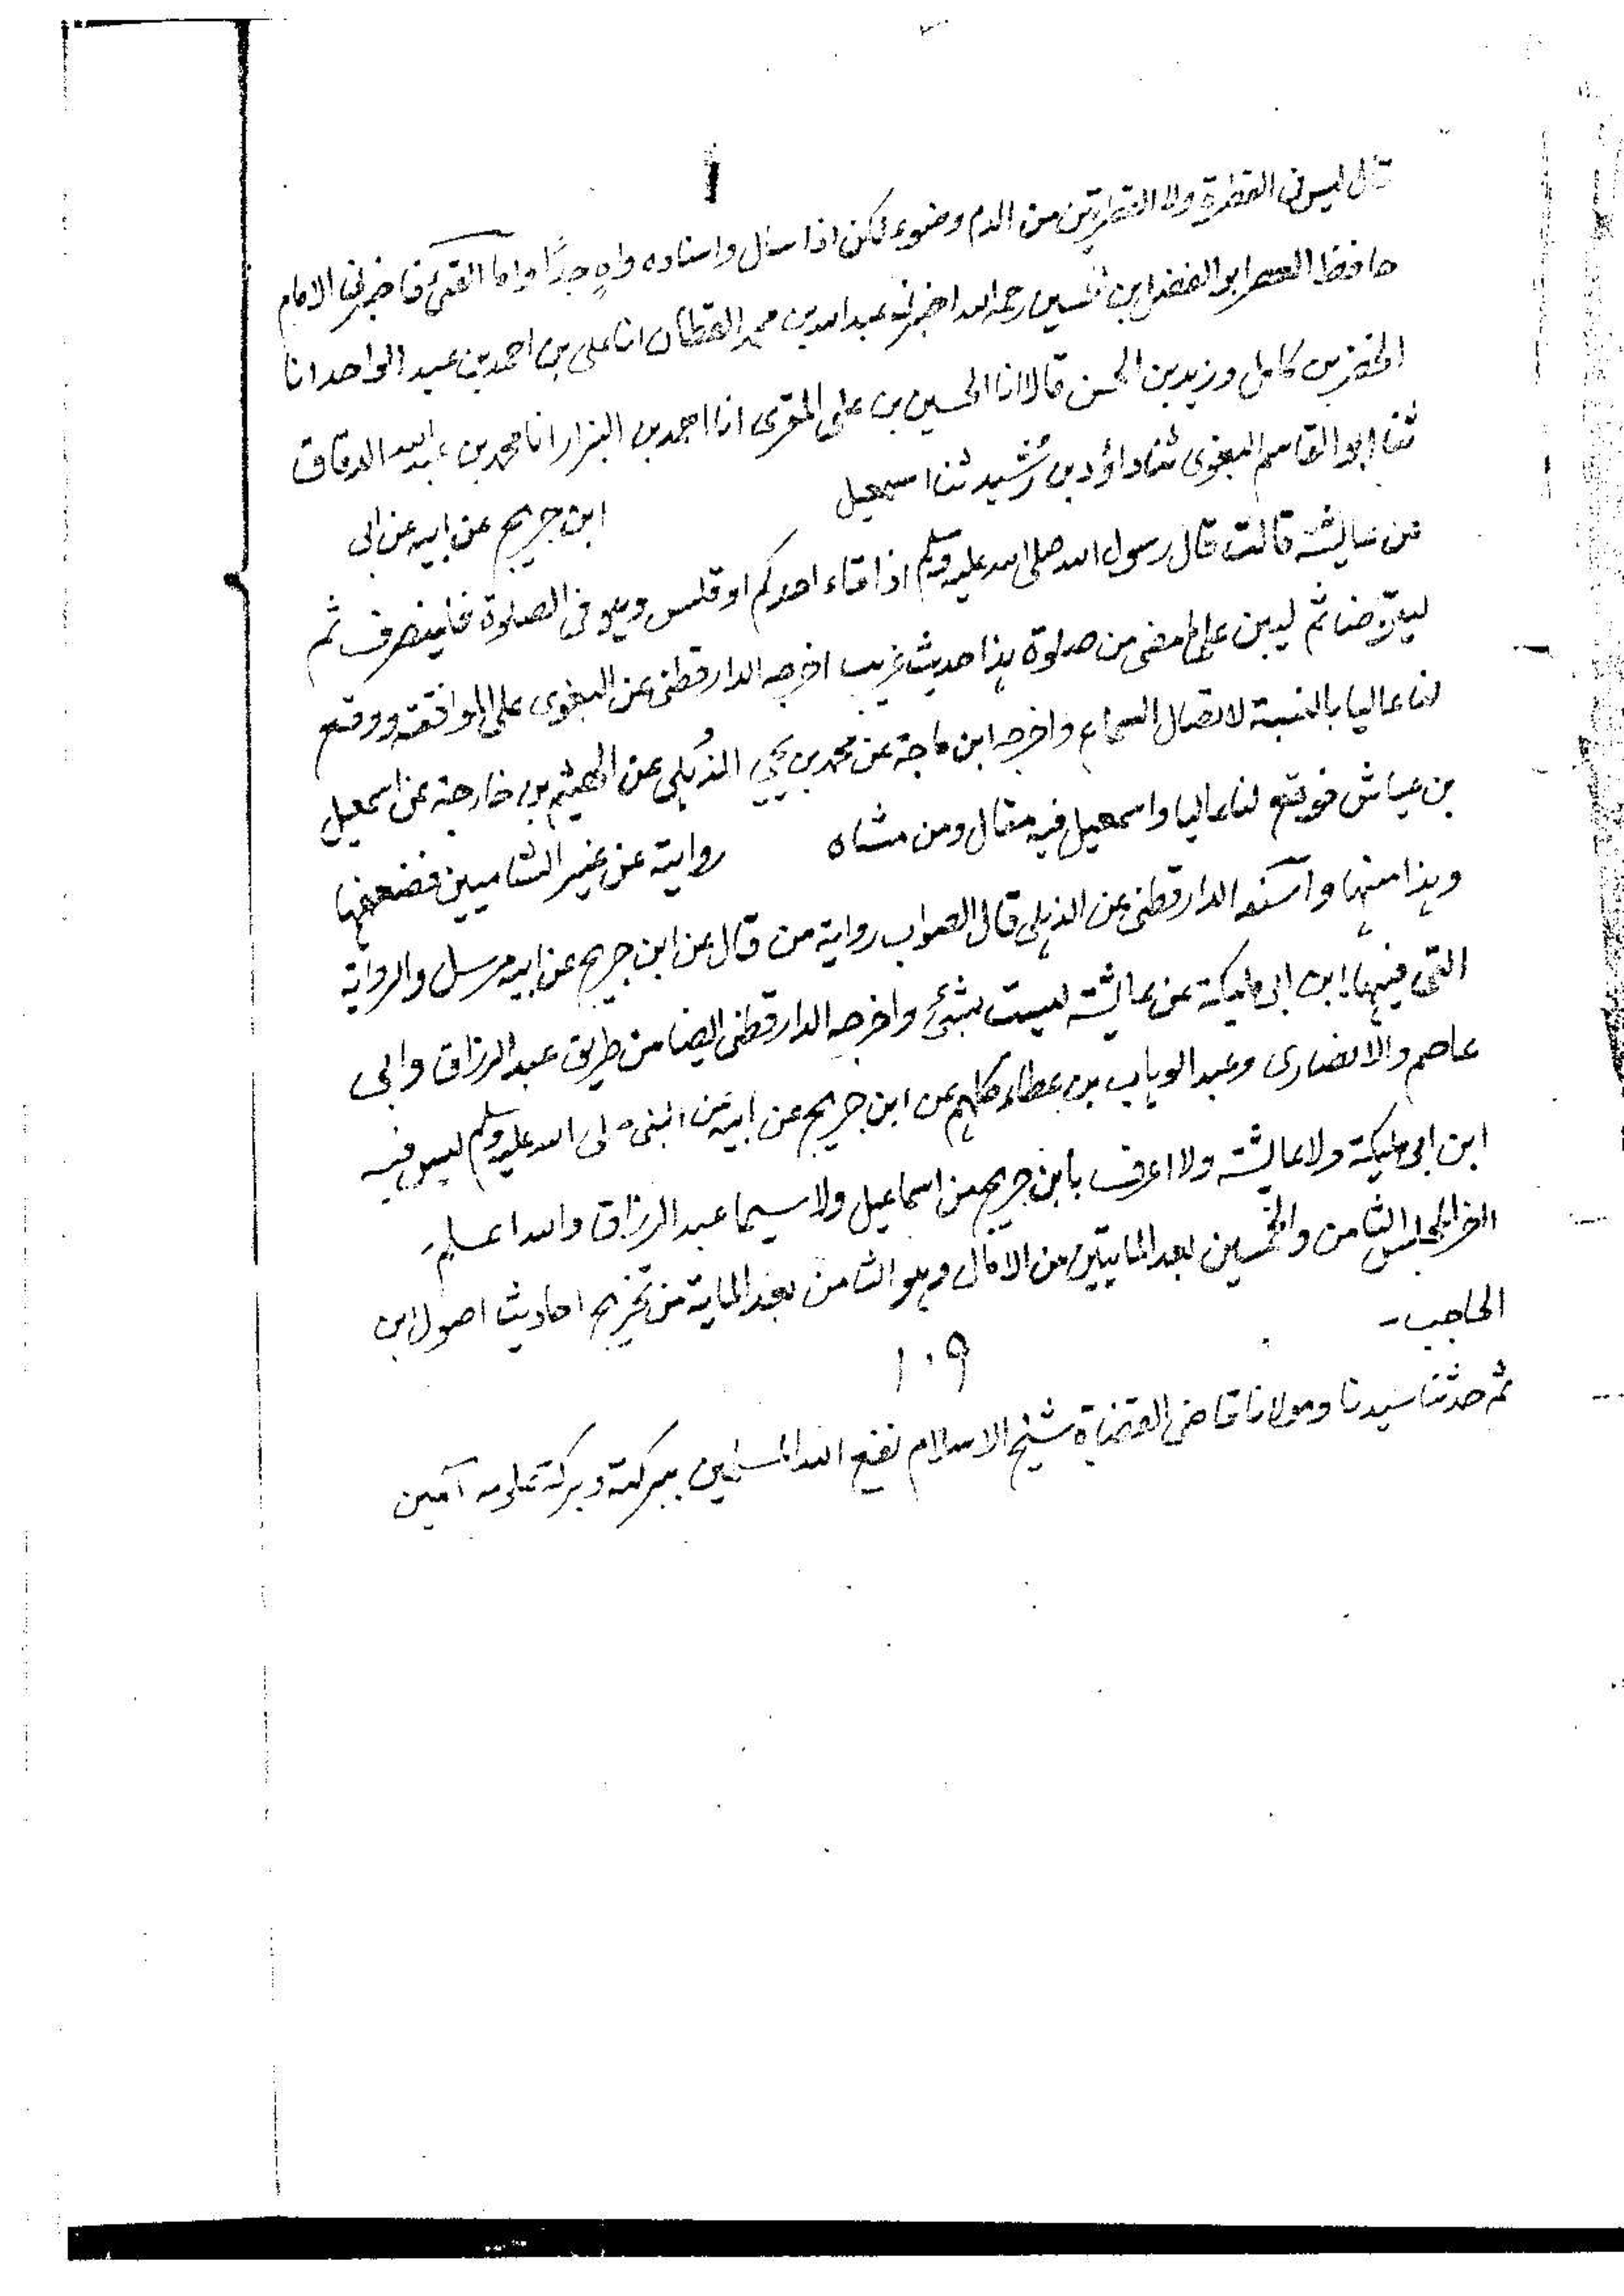 قال ليس فى القطرة ولا القطرتين من الدم وضوء لكن اذا سال واسناده واهٍ جدًا واما القئ فاخبرنى الامام
حافظ العصر ابو الفضل بن الحسين رحمه الله اخبرنى عبد الله بن محمد القطان انا على بن احمد بن عبد الواحد انا
الخضر بن كامل وزيد بن الحسن قالا انا الحسين بن على المقرى انا احمد بن البزار انا محمد بن عبد الله الدقاق
ثنا ابو القاسم البغوى ثنا داؤد بن رُشيد ثنا اسمعيل ابن جريج عن ابيه عن ابى
عن عايشة قالت قال رسول الله صلى الله عليه وسلم اذا قاء احدكم او قلس وهو فى الصلوة فلينصرف ثم
ليتوضا ثم ليبن على ما مضى من صلوة هذا حديث غريب اخرجه الدارقطنى عن البغوى على الموافقة ووقع
لنا عاليا بالنسبة لاتصال السماع واخرجه ابن ماجة عن محمد بن يحيي الذُهلى عن الهيثم بن خارجة عن اسمعيل
بن عياش فوقع لنا عاليا واسمعيل فيه مقال ومن مشاه رواية عن غير الشاميين فضعفها
وهذا منها واسند الدارقطنى عن الذهلى قال الصواب رواية من قال عن ابن جريج عن ابيه مرسل والرواية
التى فيها ابن ابى مليكة عن عايشة ليست بشئ واخرجه الدارقطنى ايضا من طريق عبد الرزاق وابى
عاصم والانصارى وعبد الوهاب بن عطاء كلهم عن ابن جريج عن ابيه عن النبى صلى الله عليه وسلم ليس فيه
ابن ابى مليكة ولا عايشة ولا اعرف بابن جريج من اسماعيل ولا سيما عبد الرزاق والله اعلم۔
اخر المجلس الثامن والخمسين بعد المايتين من الامالى وهو الثامن بعد الماية من تخريج احاديث اصول ابن
الحاجب۔
١٠٩
ثم حدثنا سيدنا ومولانا قاضى القضاة شيخ الاسلام نفع الله المسلمين ببركته وبركة علومه آمين